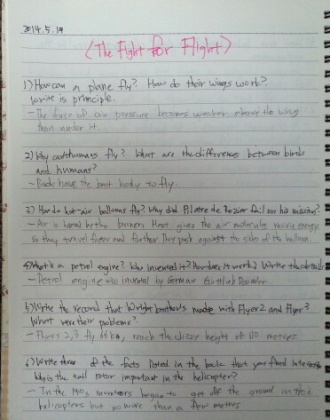 2014. 5. 19
<The Fight for Flight>
1) How can a plane fly? How do their wings work?
Write is principle.
- The force of air pressure becomes weaker above the wing
than under it.
2) Why can't humans fly? What are the differences between birds
and humans?
- Birds have the best body to fly.
3) How do hot-air balloons fly? Why did Pilatre de Rozier fail on his mission?
- Air is heated by the burners. Heat gives the air molecules more energy
so they travel faster and further. They push against the sides of the balloon.
4) What's a petrol engine? Who invented it? How does it work? Write the
- Petrol engine was invented by German Gottlieb Daimler
5) Write the record that Wright brothers made with Flyer 2 and Flyer 3.
What were their problems?
- Flyers 2, 3 fly reach the height of 110 metres
6) Write three of the facts listed in the book that you find
Why is the tail rotor important in the helicopter?
- In the 1900s inventors began to get off the ground in their
helicopters but no more than a few metres